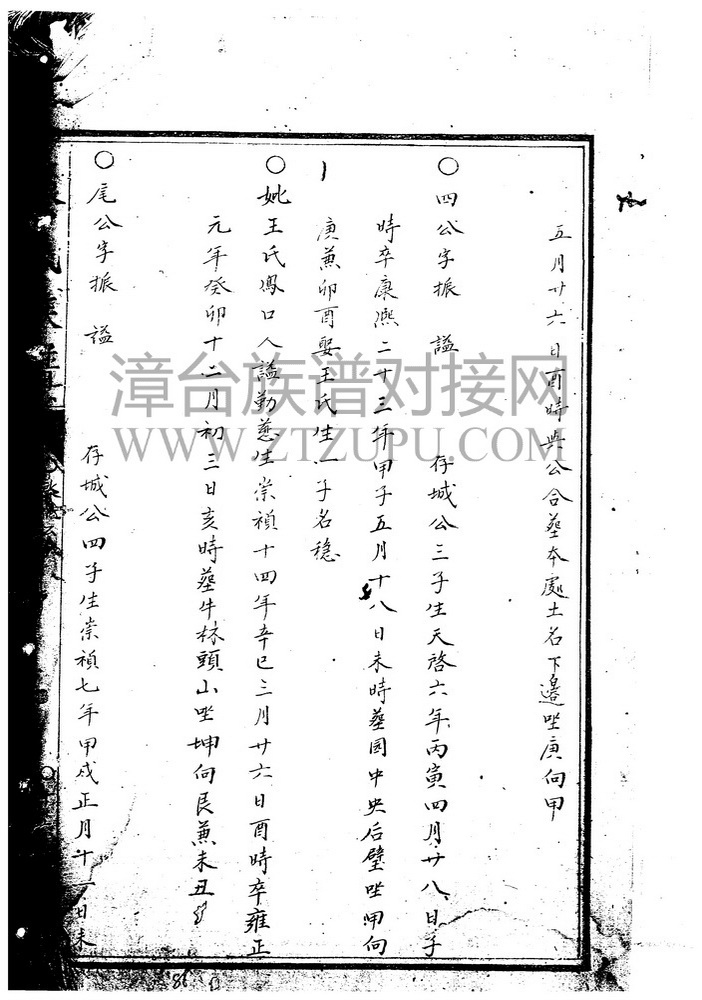 五月廿六日酉時與公合塟本處土名下邊坐庚向甲
○四公字振　謚　　存城公三子生天啓六年丙寅四月廿八日子
時卒康熙二十三年甲子五月十八日未時塟园中央后壁坐甲向
庚兼卯酉娶王氏生一子名穩
○妣王氏鳳口人謚勤慈生崇禎十四年辛巳三月廿六日酉時卒雍正
元年癸卯十二月初三日亥時塟牛林頭山坐坤向艮兼未丑
○尾公字振　謚　　存城公四子生崇禎七年甲戌正月十一日未
漳台族谱对接网
WWW.ZTZUPU.COM